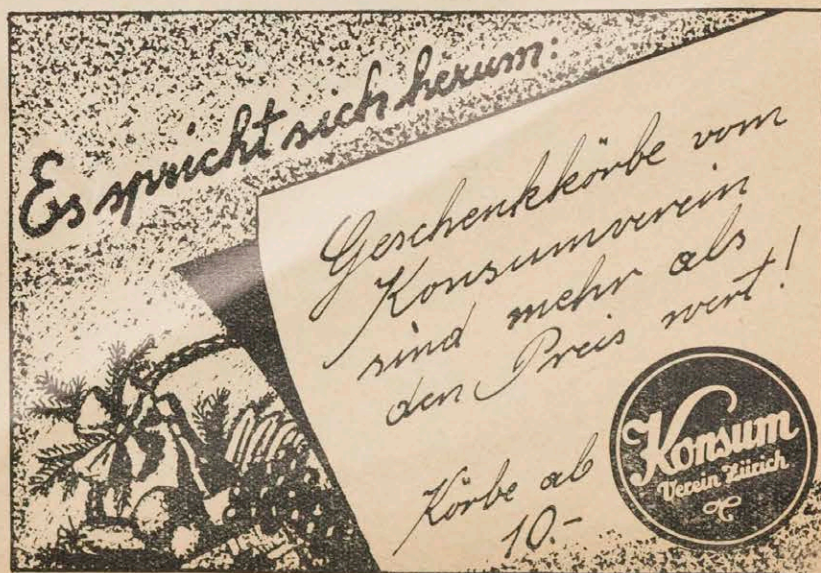 Es spricht sich herum:
Geschenkkörbe vom
Konsumverein
sind mehr als
den Preis wert!
Körbe ab
10.-
Konsum
Verein Zürich